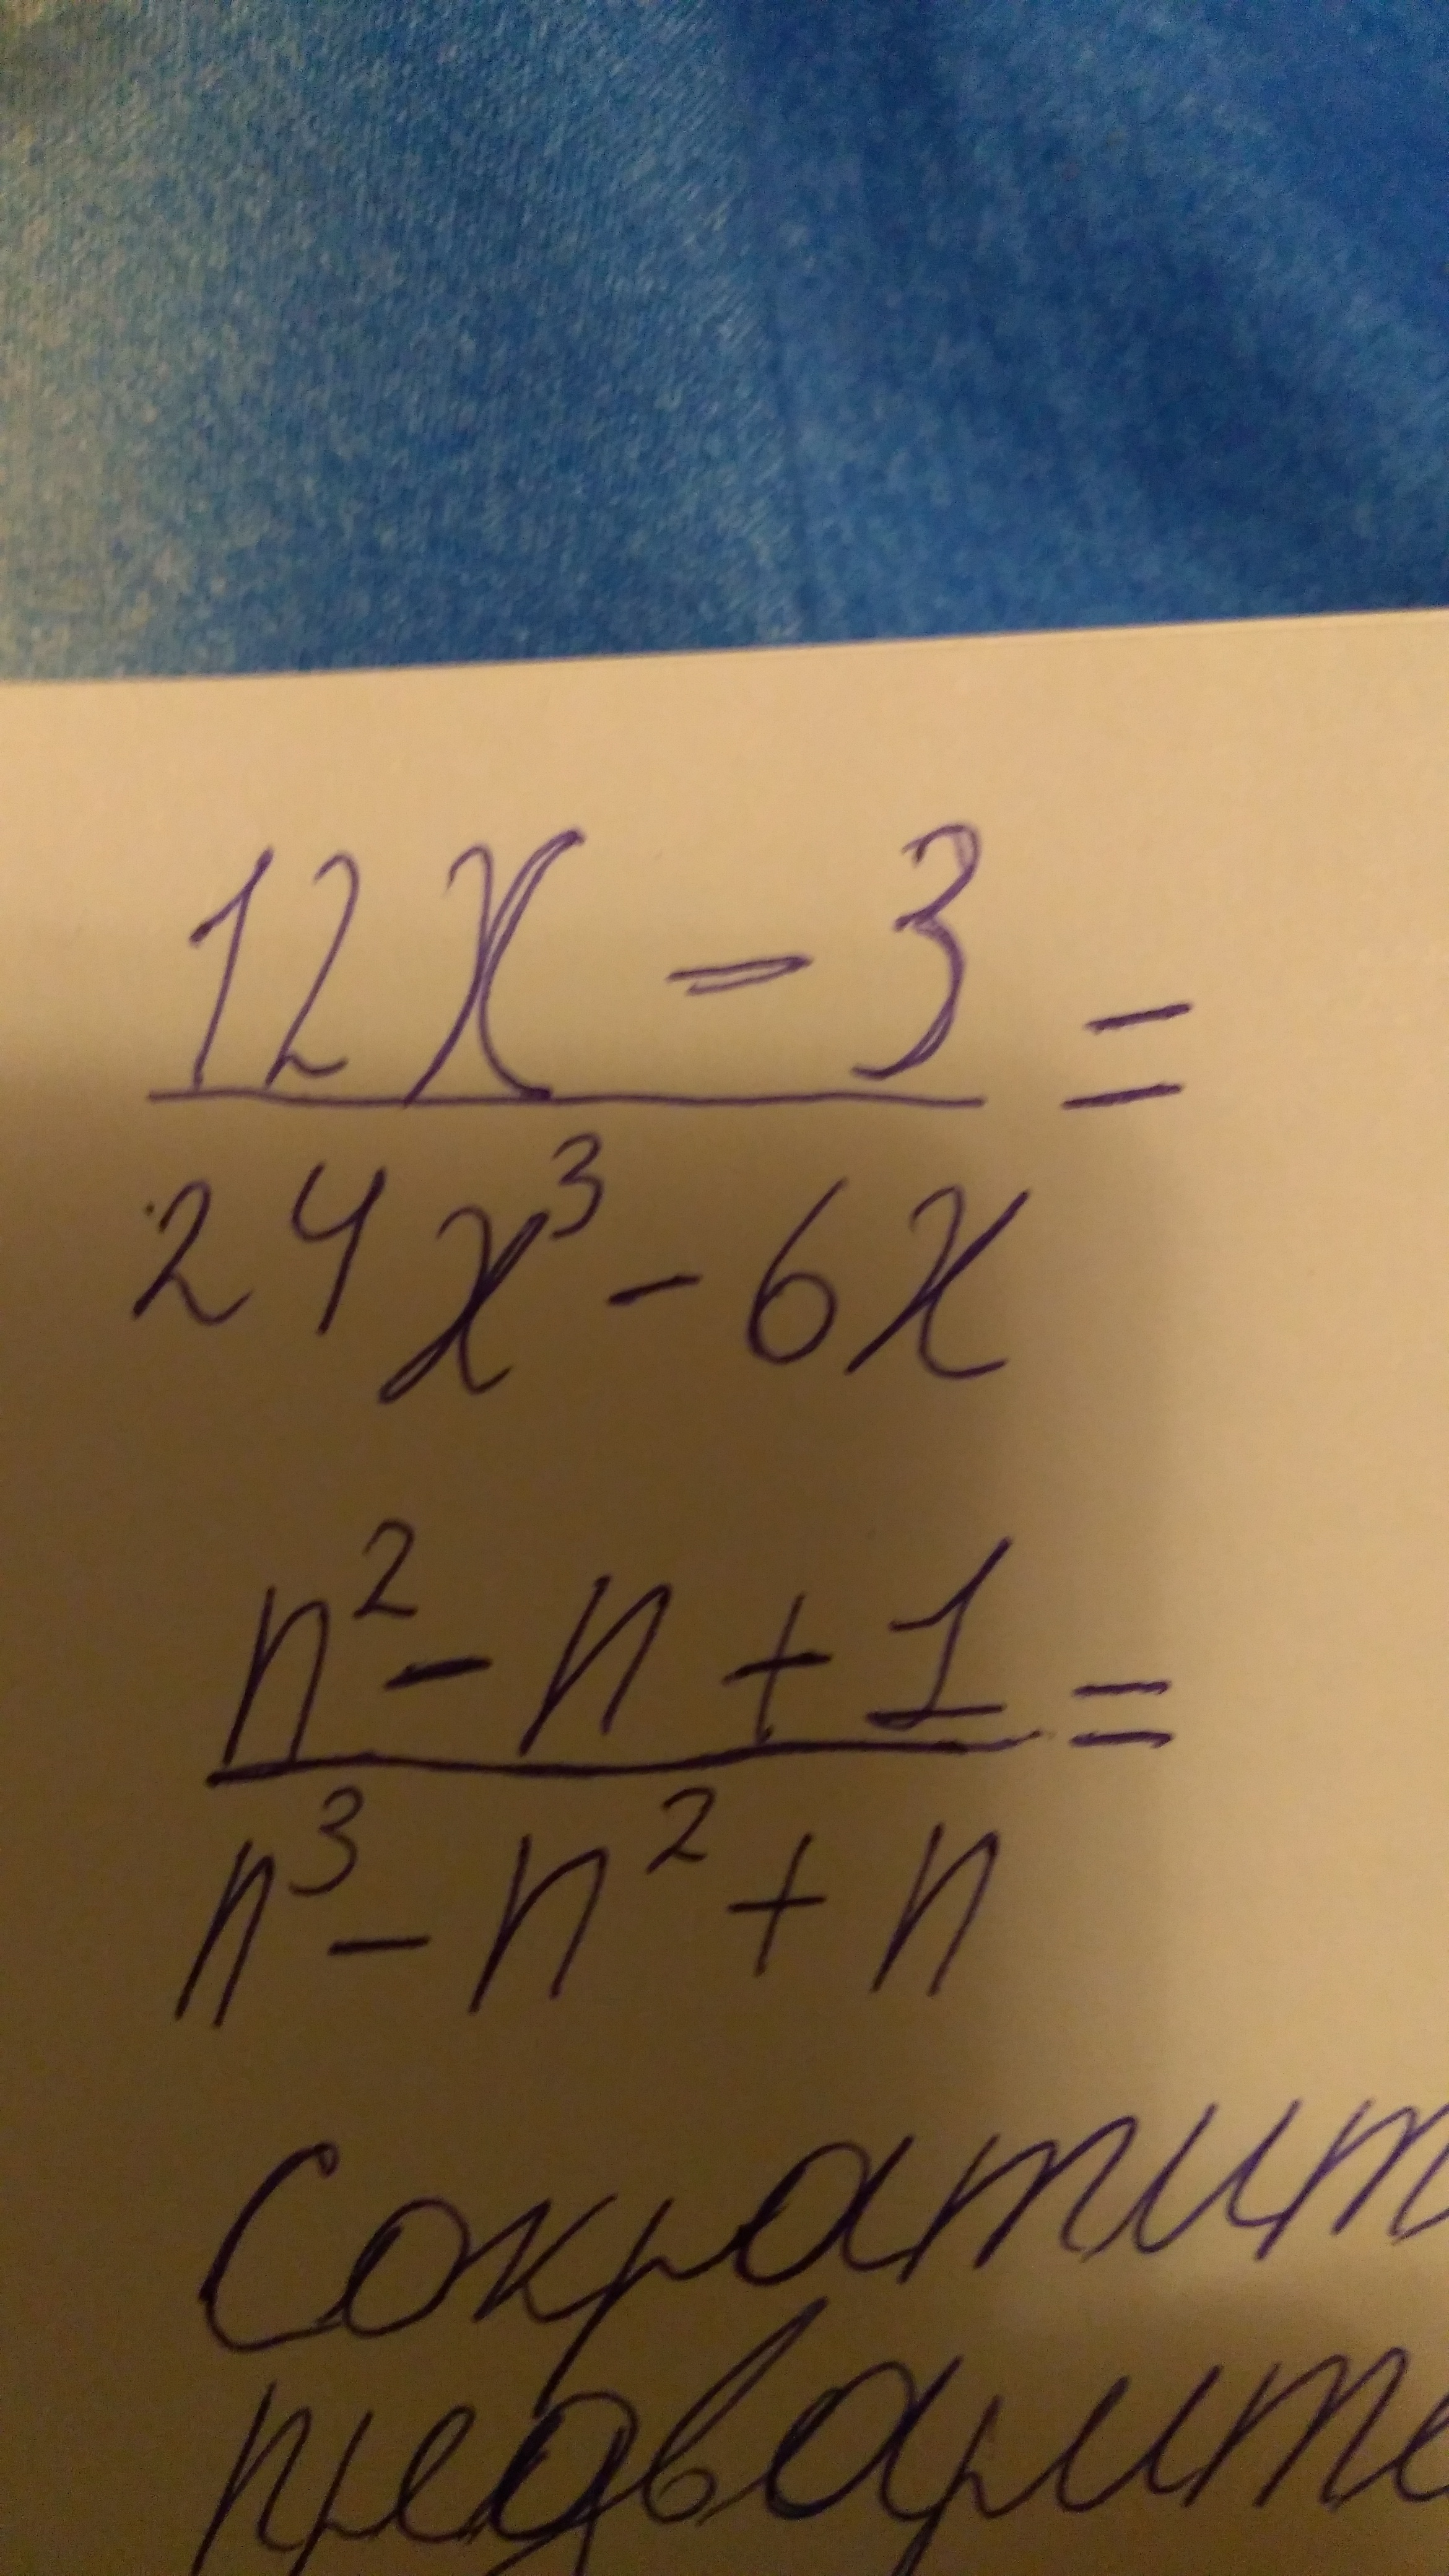 12x - 3 =
24x³ - 6x
n² - n + 1 =
n³ - n² + n
Сократит
предварите